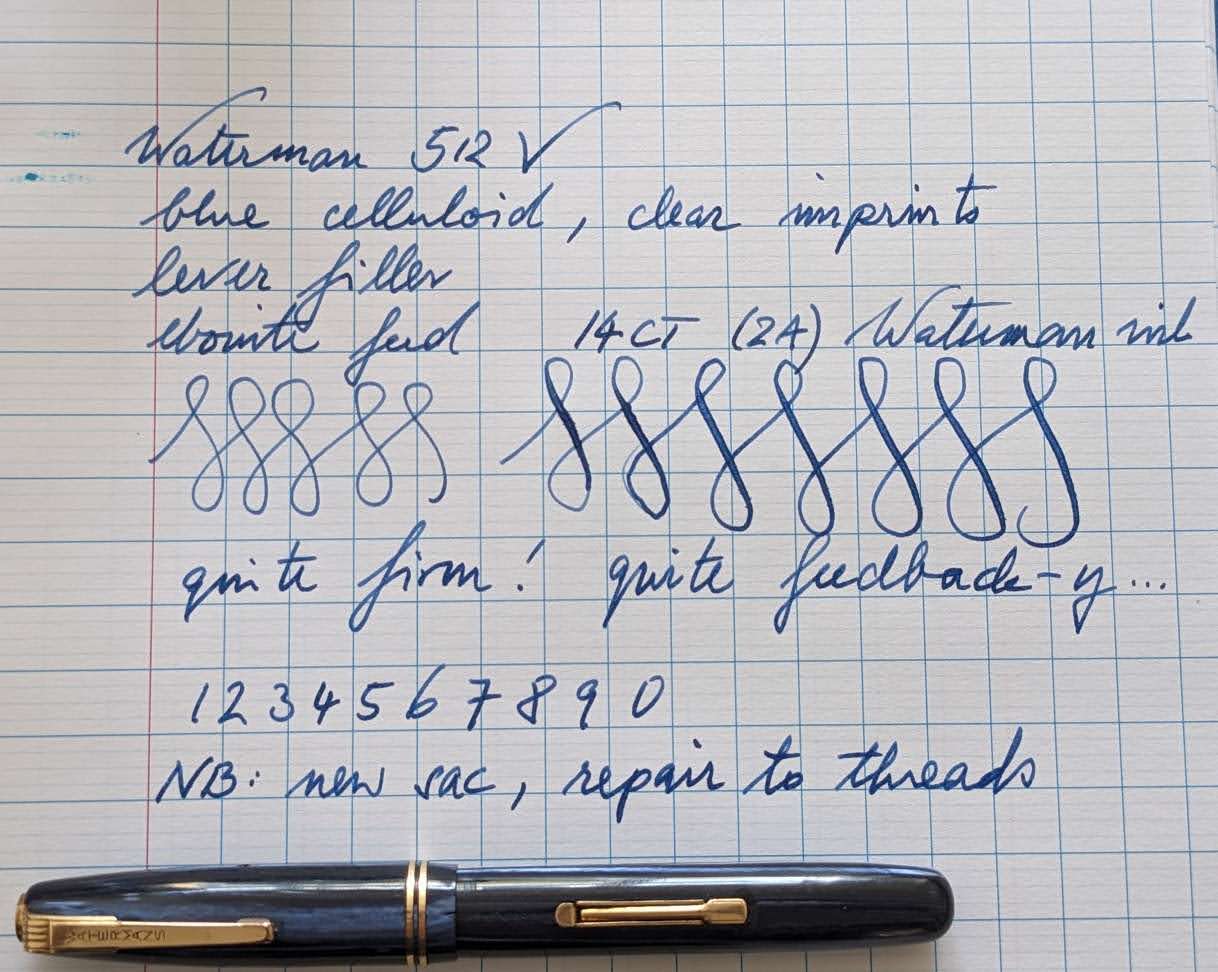 Waterman 512 V
blue celluloid, clear imprints
lever filler
ebonite feed 14CT (2A) Waterman ink
quite firm! quite feedback-y...
1 2 3 4 5 6 7 8 9 0
NB: new sac, repair to threads
WATERMANS